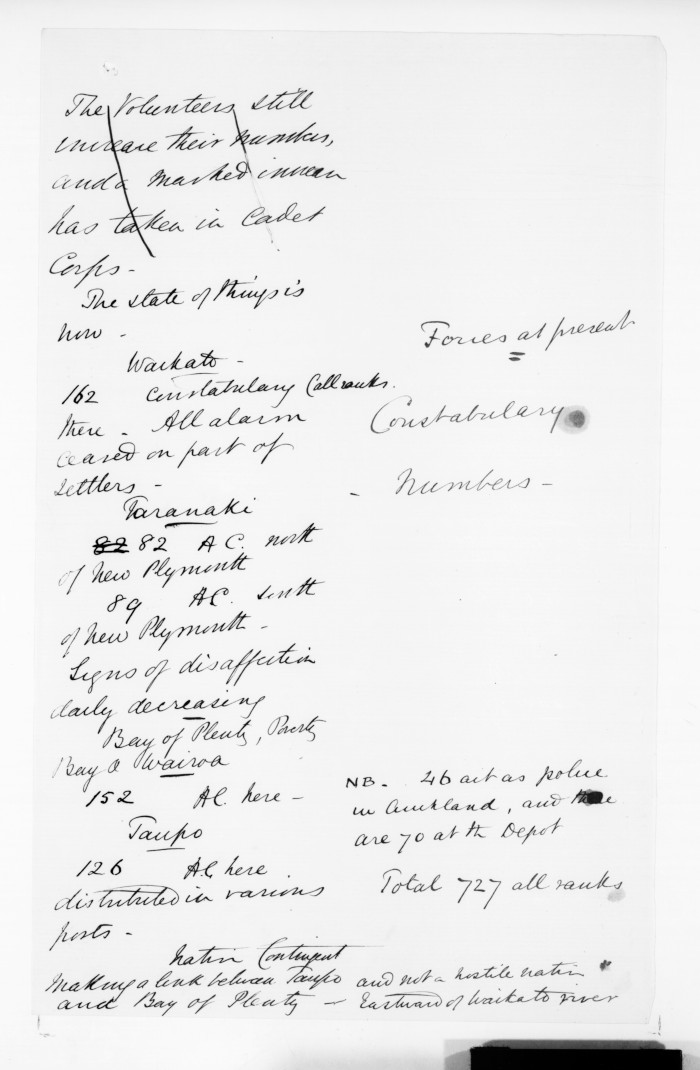 The Volunteers still
increase their numbers,
and a marked increase
has taken in Cadet
Corps -
The state of things is
now -
Waikato -
162 Constabulary (all ranks.
there - All alarm
ceased on part of
settlers -
Taranaki
82 82 A C. north
of New Plymouth
89 A.C. south
of New Plymouth -
Signs of disaffection
daily decreasing
Bay of Plenty, Poverty
Bay & Wairoa
152 A.C. here -
Taupo
126 A.C. here
distributed in various
posts -
Native Contingent
Making a link between Taupo and not a hostile native
and Bay of Plenty - Eastward of Waikato river
Forces at present
Constabulary
- Numbers -
NB - 46 act as police
in Auckland, and there
are 70 at the Depot
Total 727 all ranks